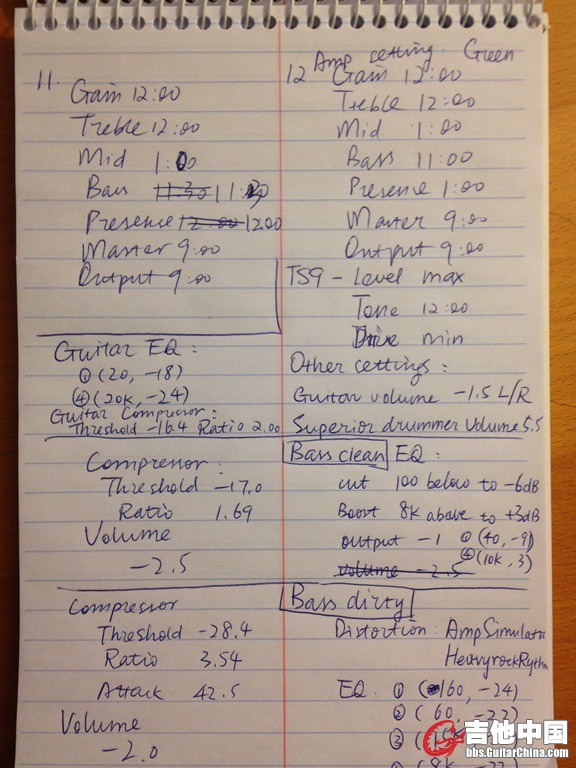 11.
Gain 12:00
Treble 12:00
Mid 1:00
Bass 11:30 11:30
Presence 12:00 12:00
Master 9:00
Output 9:00
12 Amp cetting. Green
Gain 12:00
Treble 12:00
Mid 1:00
Bass 11:00
Presence 1:00
Master 9:00
Output 9:00
TS9 - Level max
Tone 12:00
Drive min
Other cettings:
Guitar volume -1.5 L/R
Superior drummer Volume 5.5
Guitar EQ:
① (20, -18)
④ (20k, -24)
Guitar Compressor:
Threshold -16.4 Ratio 2.00
Bass clean EQ:
cut 100 below to -6dB
Boost 8k above to +3dB
output -1 ① (40, -9)
④ (10k, 3)
volume -2.5
Compressor:
Threshold -17.0
Ratio 1.69
Volume
-2.5
Bass dirty
Distortion: AmpSimulator
HeavyrockRythm
EQ: ① (160, -24)
② (60, -22)
③
(8k
Compressor
Threshold -28.4
Ratio 3.54
Attack 42.5
Volume
-2.0
吉他中国
bbs.GuitarChina.com